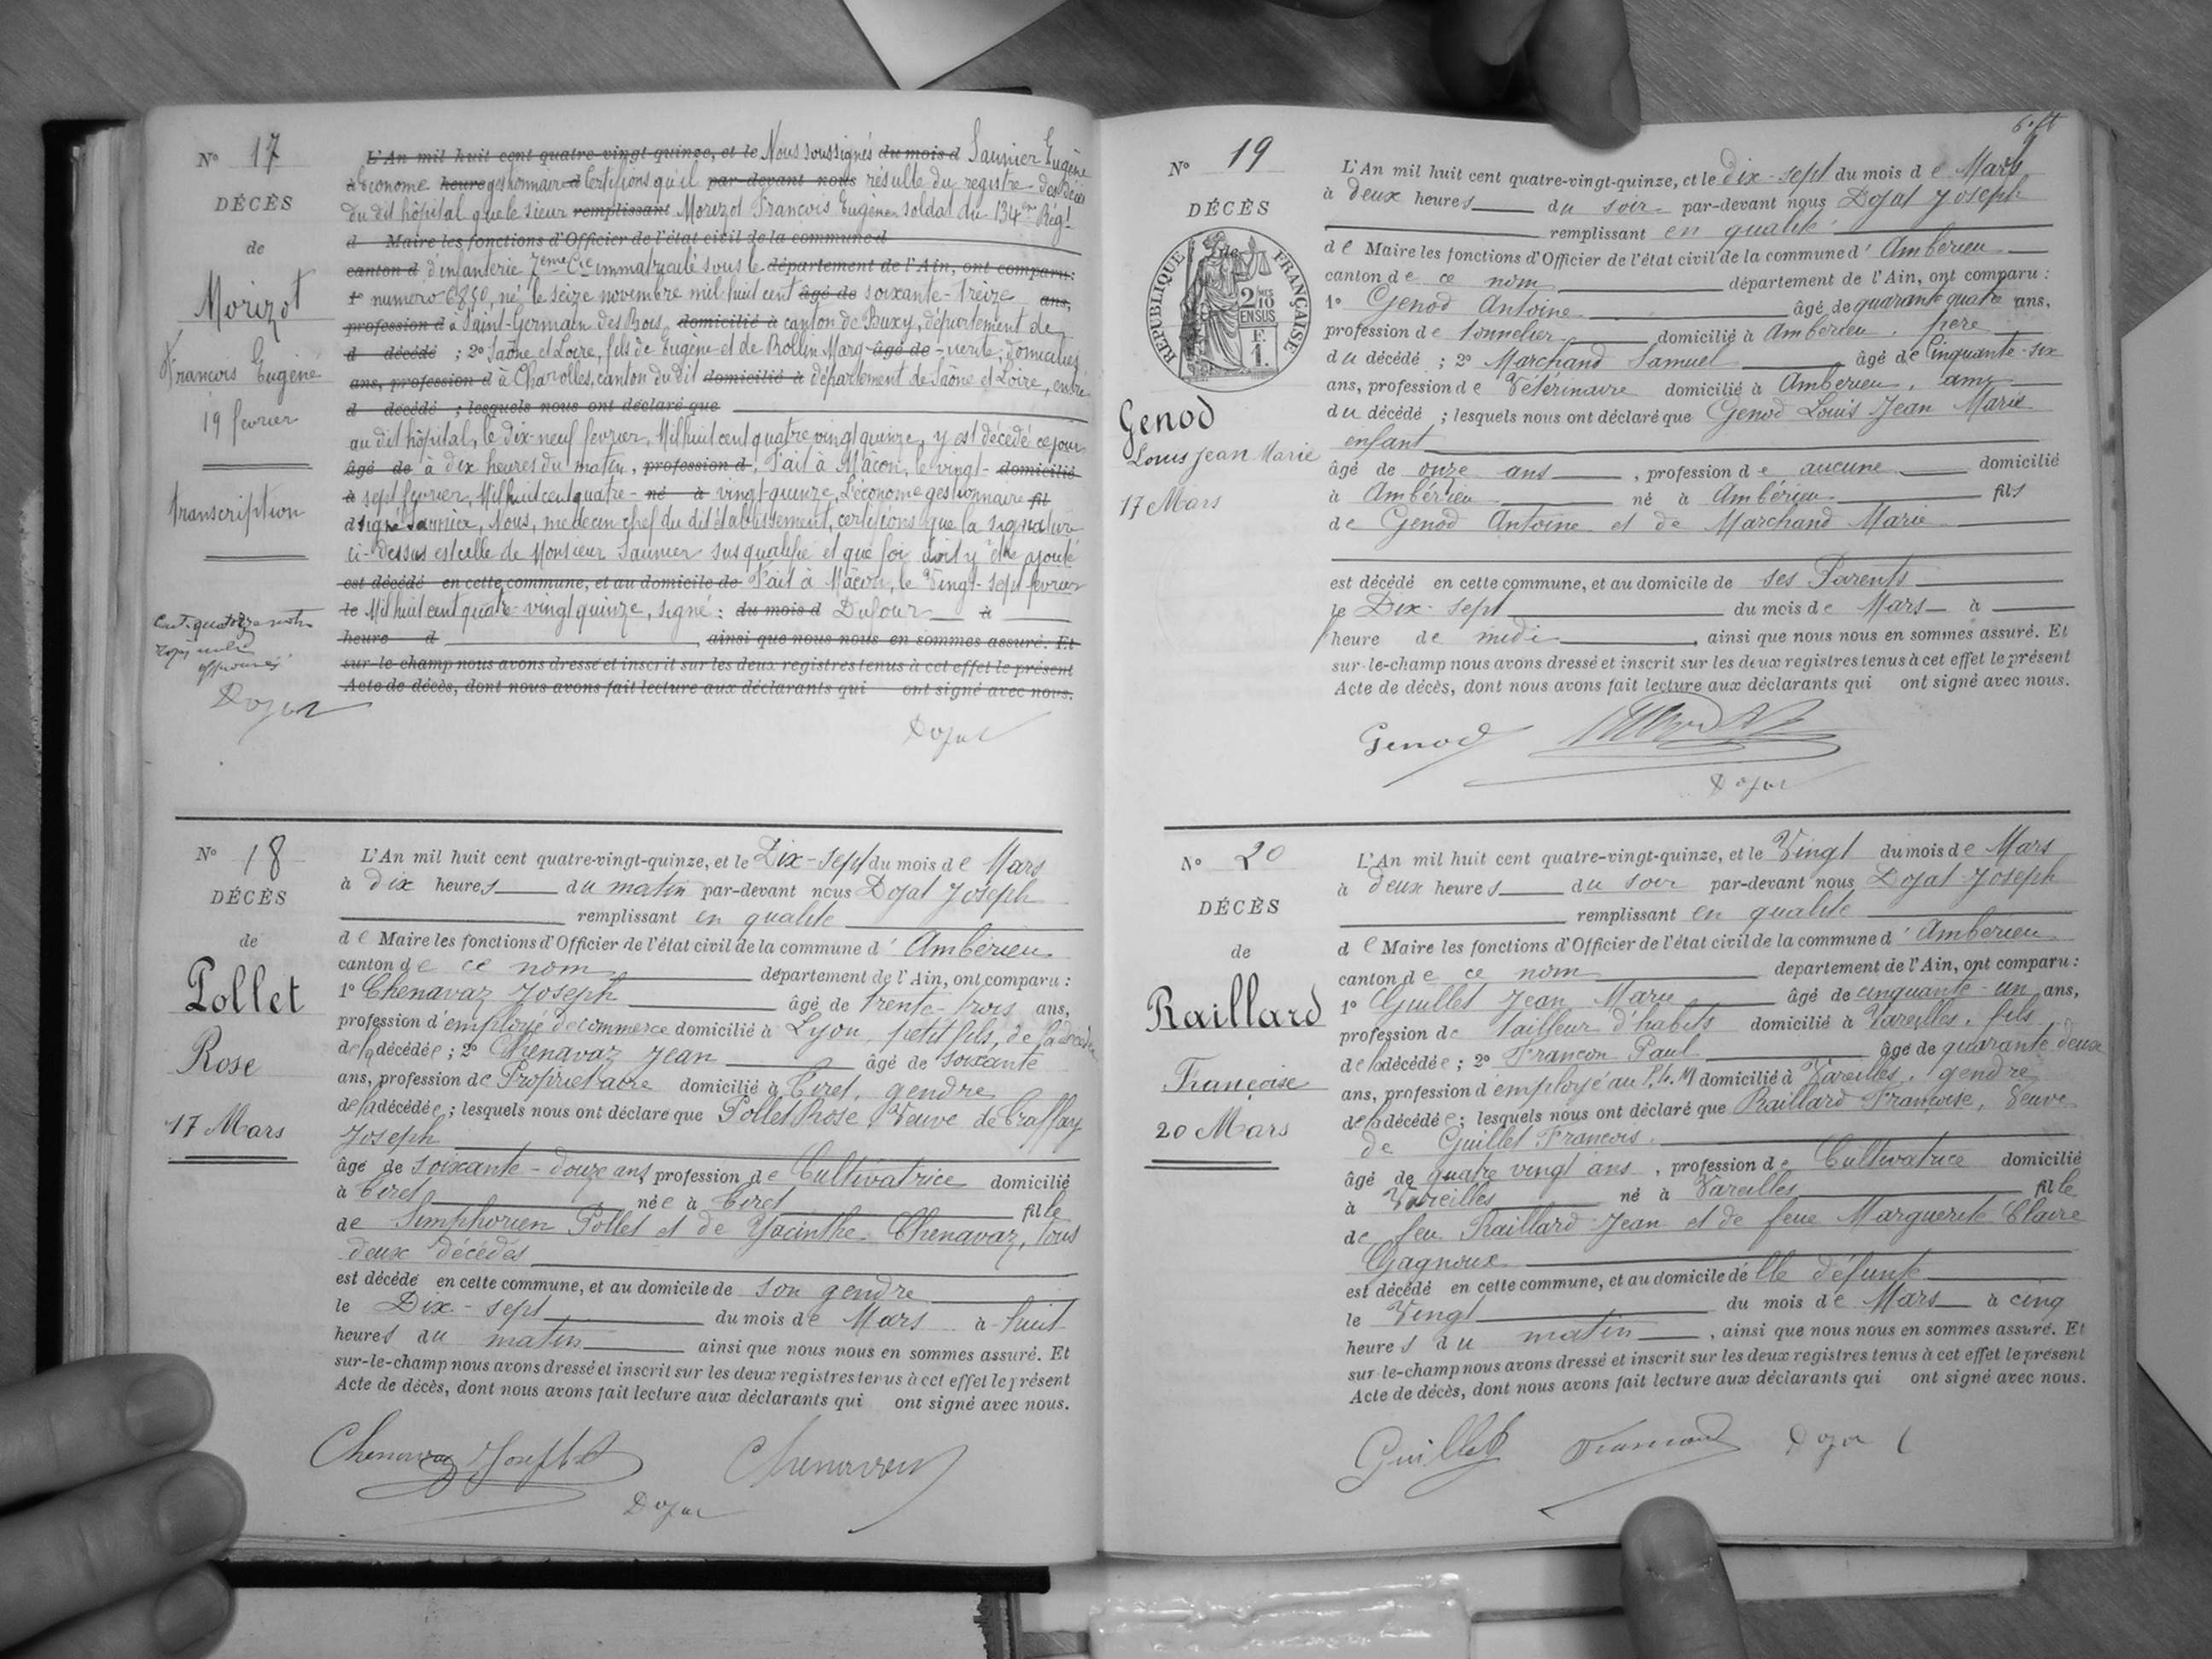 N° 17
DÉCÈS
de
Morizot
François Eugène
19 février
transcription
Dojat
L'An mil huit cent quatre-vingt-quinze, et le Nous soussignés du mois d Saunier Eugène
à Econome heure gestionnaire d Certifions qu'il par-devant nous résulte du registre des Décès
du dit hôpital que le sieur remplissant Morizot François Eugène soldat du 134e Régt
d Maire les fonctions d'Officier de l'état civil de la commune d
canton d d'infanterie 7eme Cie immatriculé sous le département de l'Ain, ont comparu:
1° numéro 6850, né le seize novembre mil huit cent âgé de soixante-treize ans,
profession d à Saint-Germain des Bois, domicilié à canton de Buxy, département de
d décédé ; 2° Saône et Loire, fils de Eugène et de Rollin Marg- âgé de -uerite; domiciliés
ans, profession d à Charolles, canton du dit domicilié à département de Saône et Loire, entré
d décédé ; lesquels nous ont déclaré que
au dit hôpital, le dix-neuf février, Mil huit cent quatre vingt quinze, y est décédé ce jour
âgé de à dix heures du matin, profession d. Fait à Mâcon, le vingt- domicilié
à sept février, Mil huit cent quatre- né à vingt-quinze, L'économe gestionnaire fil
d signé Saunier, Nous, médecin chef du dit établissement, certifions que la signature
ci-dessus est celle de Monsieur Saunier sus qualifié et que foi doit y être ajouté
est décédé en cette commune, et au domicile de Fait à Mâcon, le Vingt-sept février
le Mil huit cent quatre-vingt quinze, signé: du mois d Dufour à
heure d ainsi que nous nous en sommes assuré. Et
sur-le-champ nous avons dressé et inscrit sur les deux registres tenus à cet effet le présent
Acte de décès, dont nous avons fait lecture aux déclarants qui ont signé avec nous.
Dojat
N° 18
DÉCÈS
de
Pollet
Rose
17 Mars
L'An mil huit cent quatre-vingt-quinze, et le Dix-sept du mois de Mars
à dix heures du matin par-devant nous Dojat Joseph
remplissant en qualité
de Maire les fonctions d'Officier de l'état civil de la commune d' Ambérieu
canton de ce nom département de l'Ain, ont comparu :
1° Chenavaz Joseph âgé de trente-trois ans,
profession d'employé de commerce domicilié à Lyon, petit fils, de la décédée
de la décédée ; 2° Chenavaz Jean âgé de soixante
ans, profession de Propriétaire domicilié à Tiret, gendre
de la décédée ; lesquels nous ont déclaré que Pollet Rose Veuve de Traffay
Joseph
âgé de soixante-douze ans, profession de Cultivatrice domicilié
à Tiret née à Tiret fille
de Simphorien Pollet et de Yacinthe Chenavaz, tous
deux décédés
est décédé en cette commune, et au domicile de son gendre
le Dix-sept du mois de Mars à huit
heures du matin ainsi que nous nous en sommes assuré. Et
sur-le-champ nous avons dressé et inscrit sur les deux registres tenus à cet effet le présent
Acte de décès, dont nous avons fait lecture aux déclarants qui ont signé avec nous.
Chenavaz Joseph Chenavaz
Dojat
N° 19
DÉCÈS
RÉPUBLIQUE FRANÇAISE
2/10 EN SUS
F. 1.
Genod
Louis Jean Marie
17 Mars
L'An mil huit cent quatre-vingt-quinze, et le dix-sept du mois de Mars
à deux heures du soir par-devant nous Dojat Joseph
remplissant en qualité
de Maire les fonctions d'Officier de l'état civil de la commune d' Ambérieu
canton de ce nom département de l'Ain, ont comparu :
1° Genod Antoine âgé de quarante quatre ans,
profession de tonnelier domicilié à Ambérieu, père
du décédé ; 2° Marchand Samuel âgé de Cinquante-six
ans, profession de Vétérinaire domicilié à Ambérieu, ami
du décédé ; lesquels nous ont déclaré que Genod Louis Jean Marie
enfant
âgé de onze ans , profession de aucune domicilié
à Ambérieu né à Ambérieu fils
de Genod Antoine et de Marchand Marie
est décédé en cette commune, et au domicile de ses Parents
le Dix-sept du mois de Mars à
heure de midi , ainsi que nous nous en sommes assuré. Et
sur-le-champ nous avons dressé et inscrit sur les deux registres tenus à cet effet le présent
Acte de décès, dont nous avons fait lecture aux déclarants qui ont signé avec nous.
Genod
Dojat
N° 20
DÉCÈS
de
Raillard
Françoise
20 Mars
L'An mil huit cent quatre-vingt-quinze, et le Vingt du mois de Mars
à deux heures du soir par-devant nous Dojat Joseph
remplissant en qualité
de Maire les fonctions d'Officier de l'état civil de la commune d' Ambérieu
canton de ce nom département de l'Ain, ont comparu :
1° Guillet Jean Marie âgé de cinquante-un ans,
profession de tailleur d'habits domicilié à Vareilles, fils
de la décédée ; 2° Françon Paul âgé de quarante deux
ans, profession d'employé au P.L.M domicilié à Vareilles, gendre
de la décédée ; lesquels nous ont déclaré que Raillard Françoise, Veuve
de Guillet François.
âgé de quatre vingt ans , profession de Cultivatrice domicilié
à Vareilles né à Vareilles fille
de feu Raillard Jean et de feue Marguerite Claire
Gagneux
est décédé en cette commune, et au domicile de lle défunte
le Vingt du mois de Mars à cinq
heures du matin , ainsi que nous nous en sommes assuré. Et
sur-le-champ nous avons dressé et inscrit sur les deux registres tenus à cet effet le présent
Acte de décès, dont nous avons fait lecture aux déclarants qui ont signé avec nous.
Guillet Françon Dojat